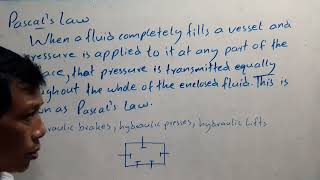 Pascal's Law
When a fluid completely fills a vessel and
pressure is applied to it at any part of the
face, that pressure is transmitted equally
oughout the whole of the enclosed fluid. This is
on as Pascal's Law.
raulic brakes, hydraulic presses, hydraulic lifts